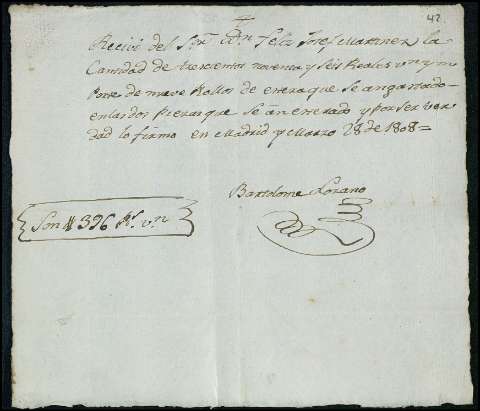 42
Recivi del Sr. Dn. Feliz Josef Martinez la
Cantidad de trescientos noventa y seis Reales vn y m
Porte de nueve Rollos de estera que se an gastado
en las dos Piezas que se an esterado y por ser ver
dad lo firmo en Madrid y Marzo 28 de 1808=
Bartolome Lozano
Son # 396 Rs. vn